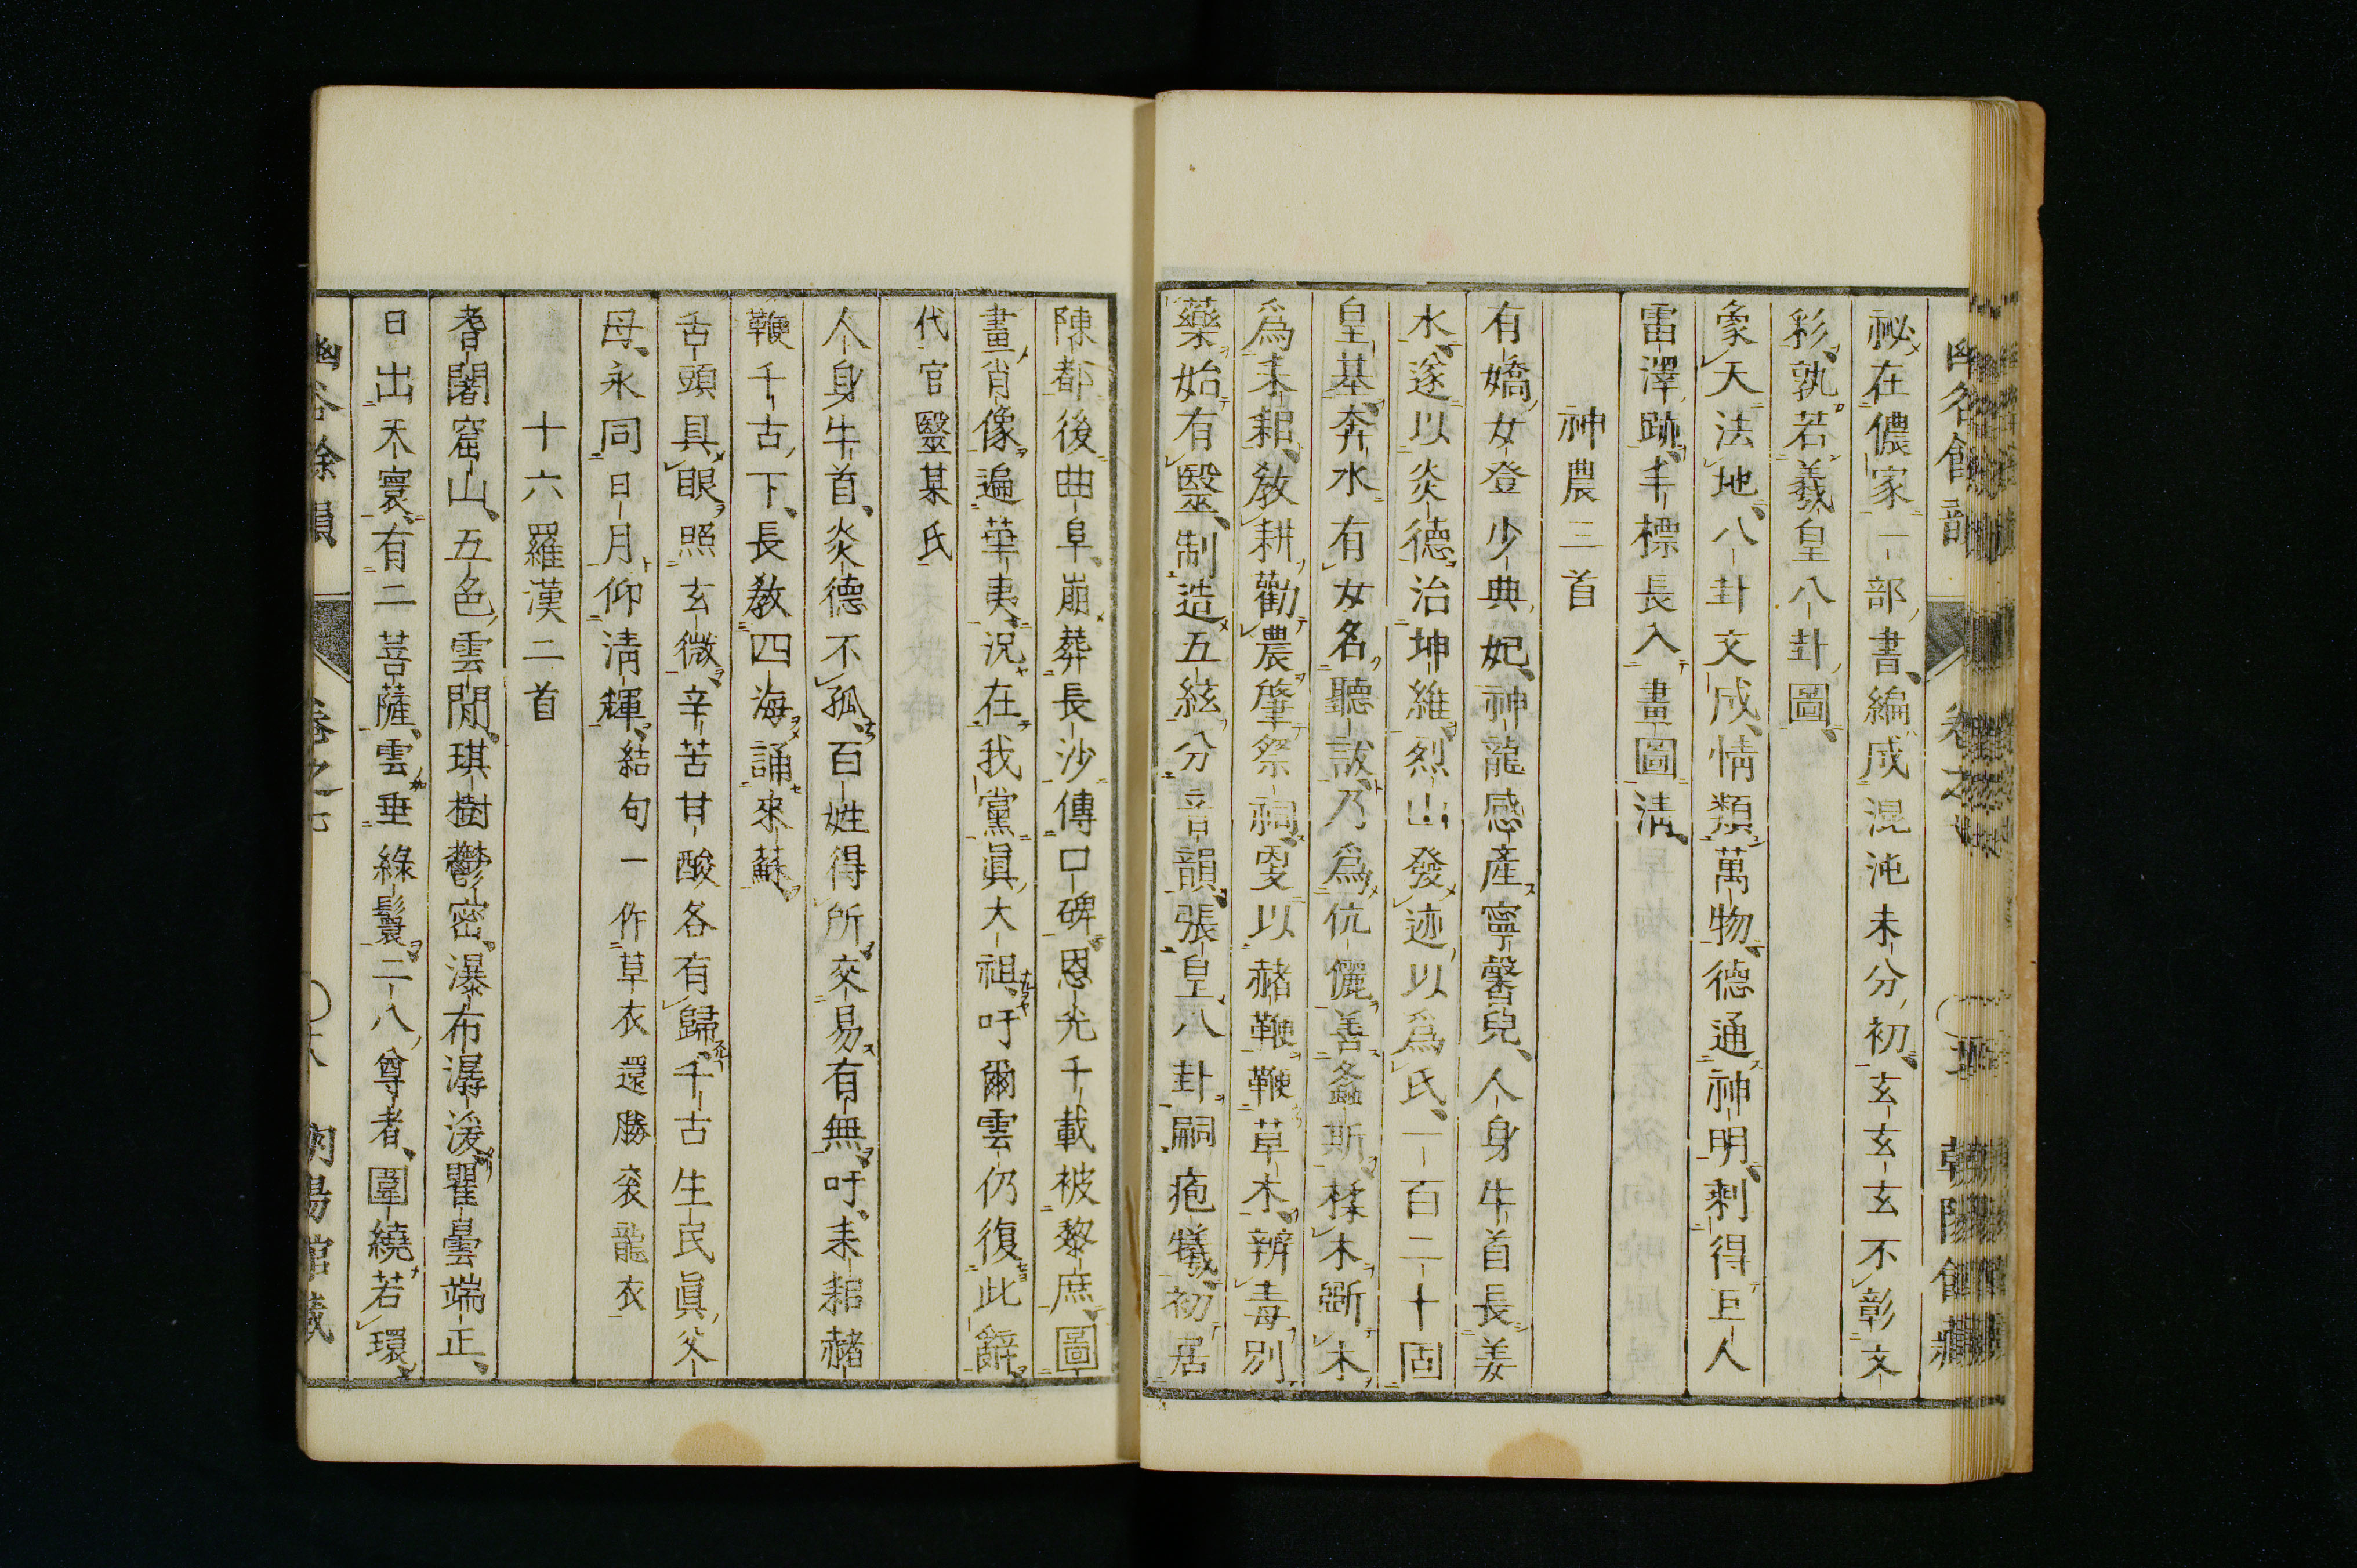 幽谷餘韻 卷之七 朝陽館藏
祕在儂家一部書編成混沌未分初玄玄玄不彰文
彩孰若羲皇八卦圖
象天法地八卦文成情類萬物德通神明剩得巨人
雷澤跡手標長入畫圖淸
神農三首
有嬌女登少典妃神龍感產寧馨兒人身牛首長姜
水遂以炎德治坤維烈山發迹以爲氏一百二十固
皇基奔水有女名聽詙乃爲伉儷善螽斯楺木斲木
爲耒耜敎耕勸農肇祭祠爰以赭鞭鞭草木辨毒別
藥始有毉制造五絃分音韻張皇八卦嗣疱犧初居
陳都後曲阜崩葬長沙傳口碑恩光千載被黎庶圖
畫肖像遍華夷況在我黨眞大祖吁爾雲仍復此辭
代官毉某氏
人身牛首炎德不孤百姓得所交易有無吁耒耜赭
鞭千古下長敎四海誦來蘇
舌頭具眼照玄微辛苦甘酸各有歸千古生民眞父
母永同日月仰淸輝結句一作草衣還勝袞龍衣
十六羅漢二首
耆闍窟山五色雲閒琪樹鬱密瀑布潺湲瞿曇端正
日出禾寰有二菩薩雲垂綠鬟二八尊者圍繞若環
幽谷餘韻 卷之七 〇六 朝陽館藏